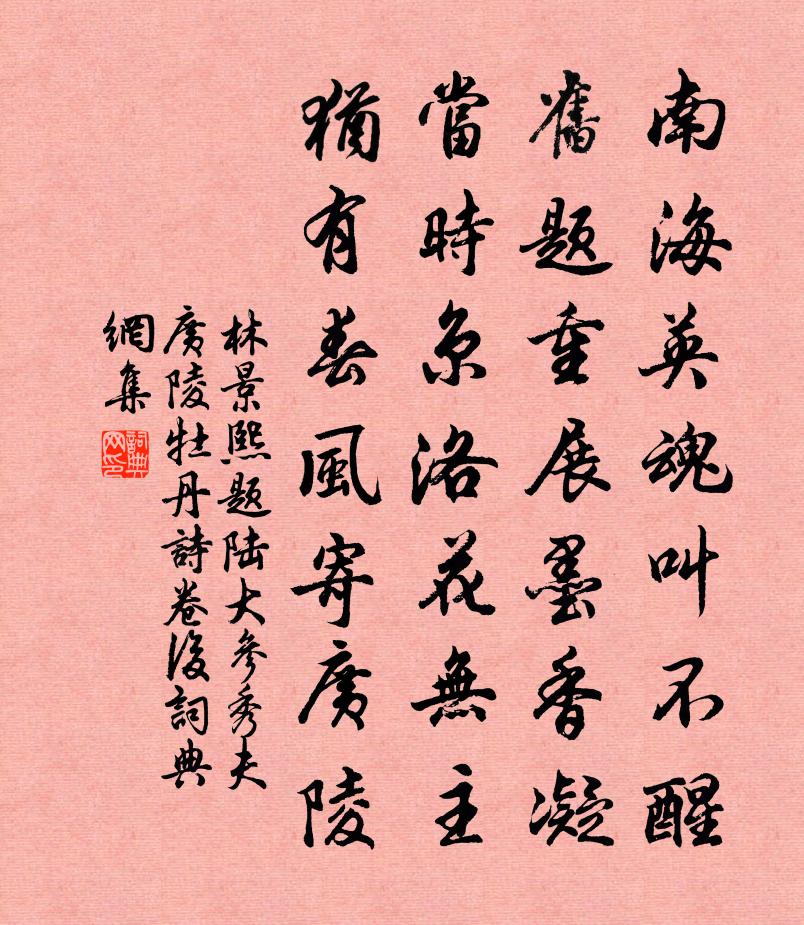 南海英魂叫不醒
舊題重展墨香凝
當時京洛花無主
猶有春風寄廣陵
林景熙題陸大參秀夫
廣陵牡丹詩卷後詞典
網集
詞典網印